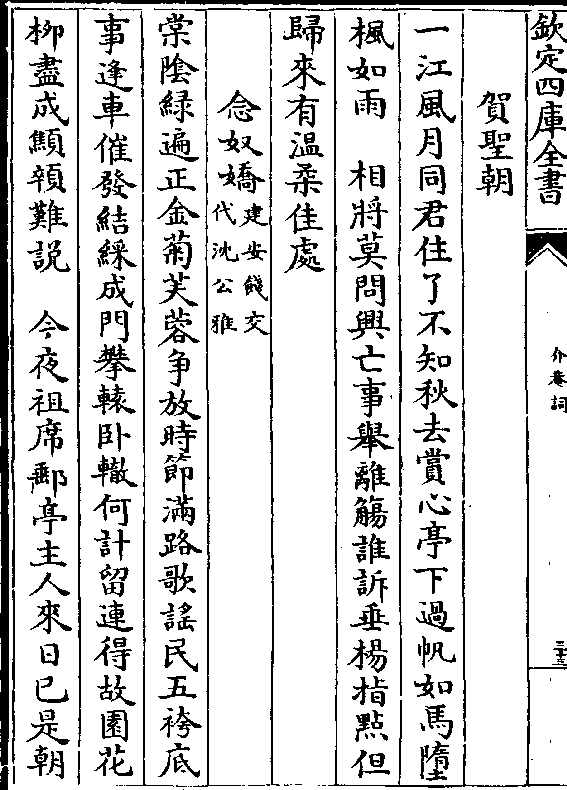 欽定四庫全書
介菴詞
三十三
賀聖朝
一江風月同君住了不知秋去賞心亭下過帆如馬墮
楓如雨　相將莫問興亡事舉離觴誰訴垂楊指點但
歸來有温柔佳處
念奴嬌建安餞交代沈公雅
棠陰緑遍正金菊芙蓉争放時節滿路歌謡民五袴底
事逢車催發結綵成門攀轅卧轍何計留連得故園花
柳盡成顦顇難説　今夜祖席郵亭主人來日已是朝